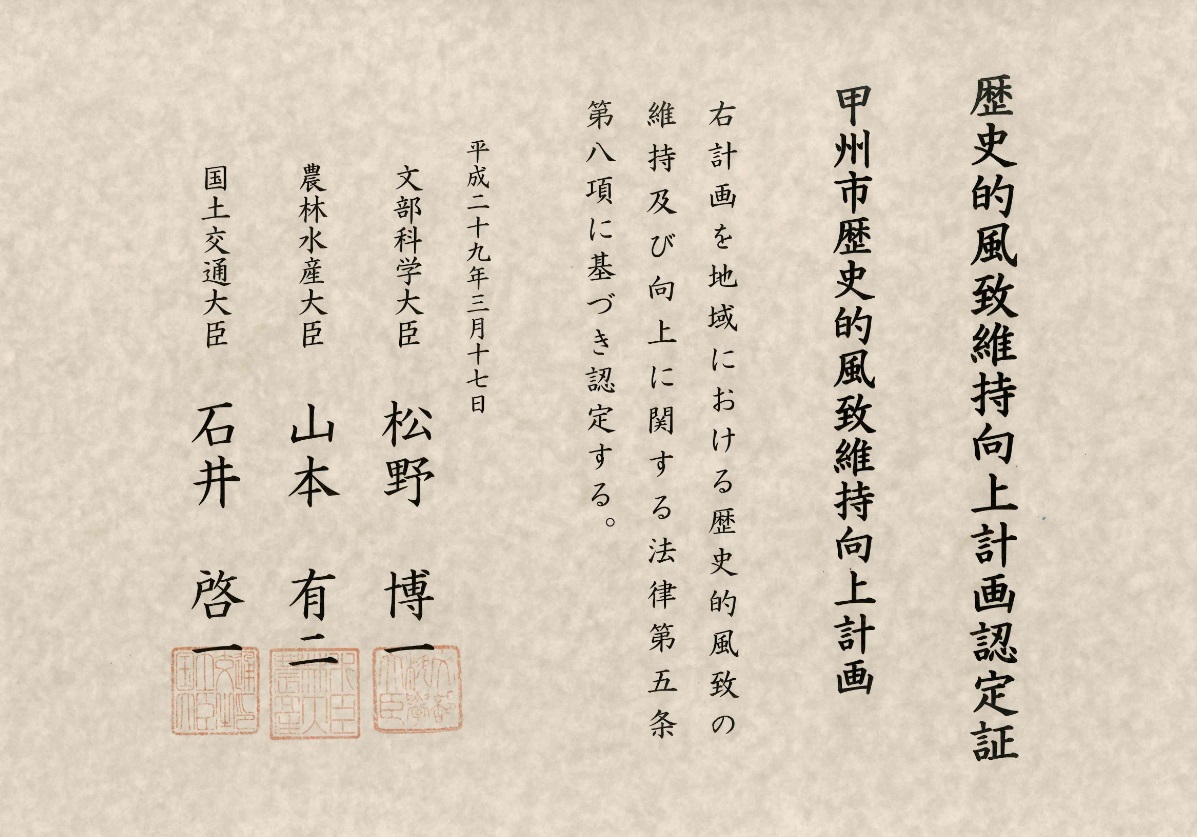 歴史的風致維持向上計画認定証
甲州市歴史的風致維持向上計画
右計画を地域における歴史的風致の
維持及び向上に関する法律第五条
第八項に基づき認定する。
平成二十九年三月十七日
文部科学大臣 松野 博一
農林水産大臣 山本 有二
国土交通大臣 石井 啓一